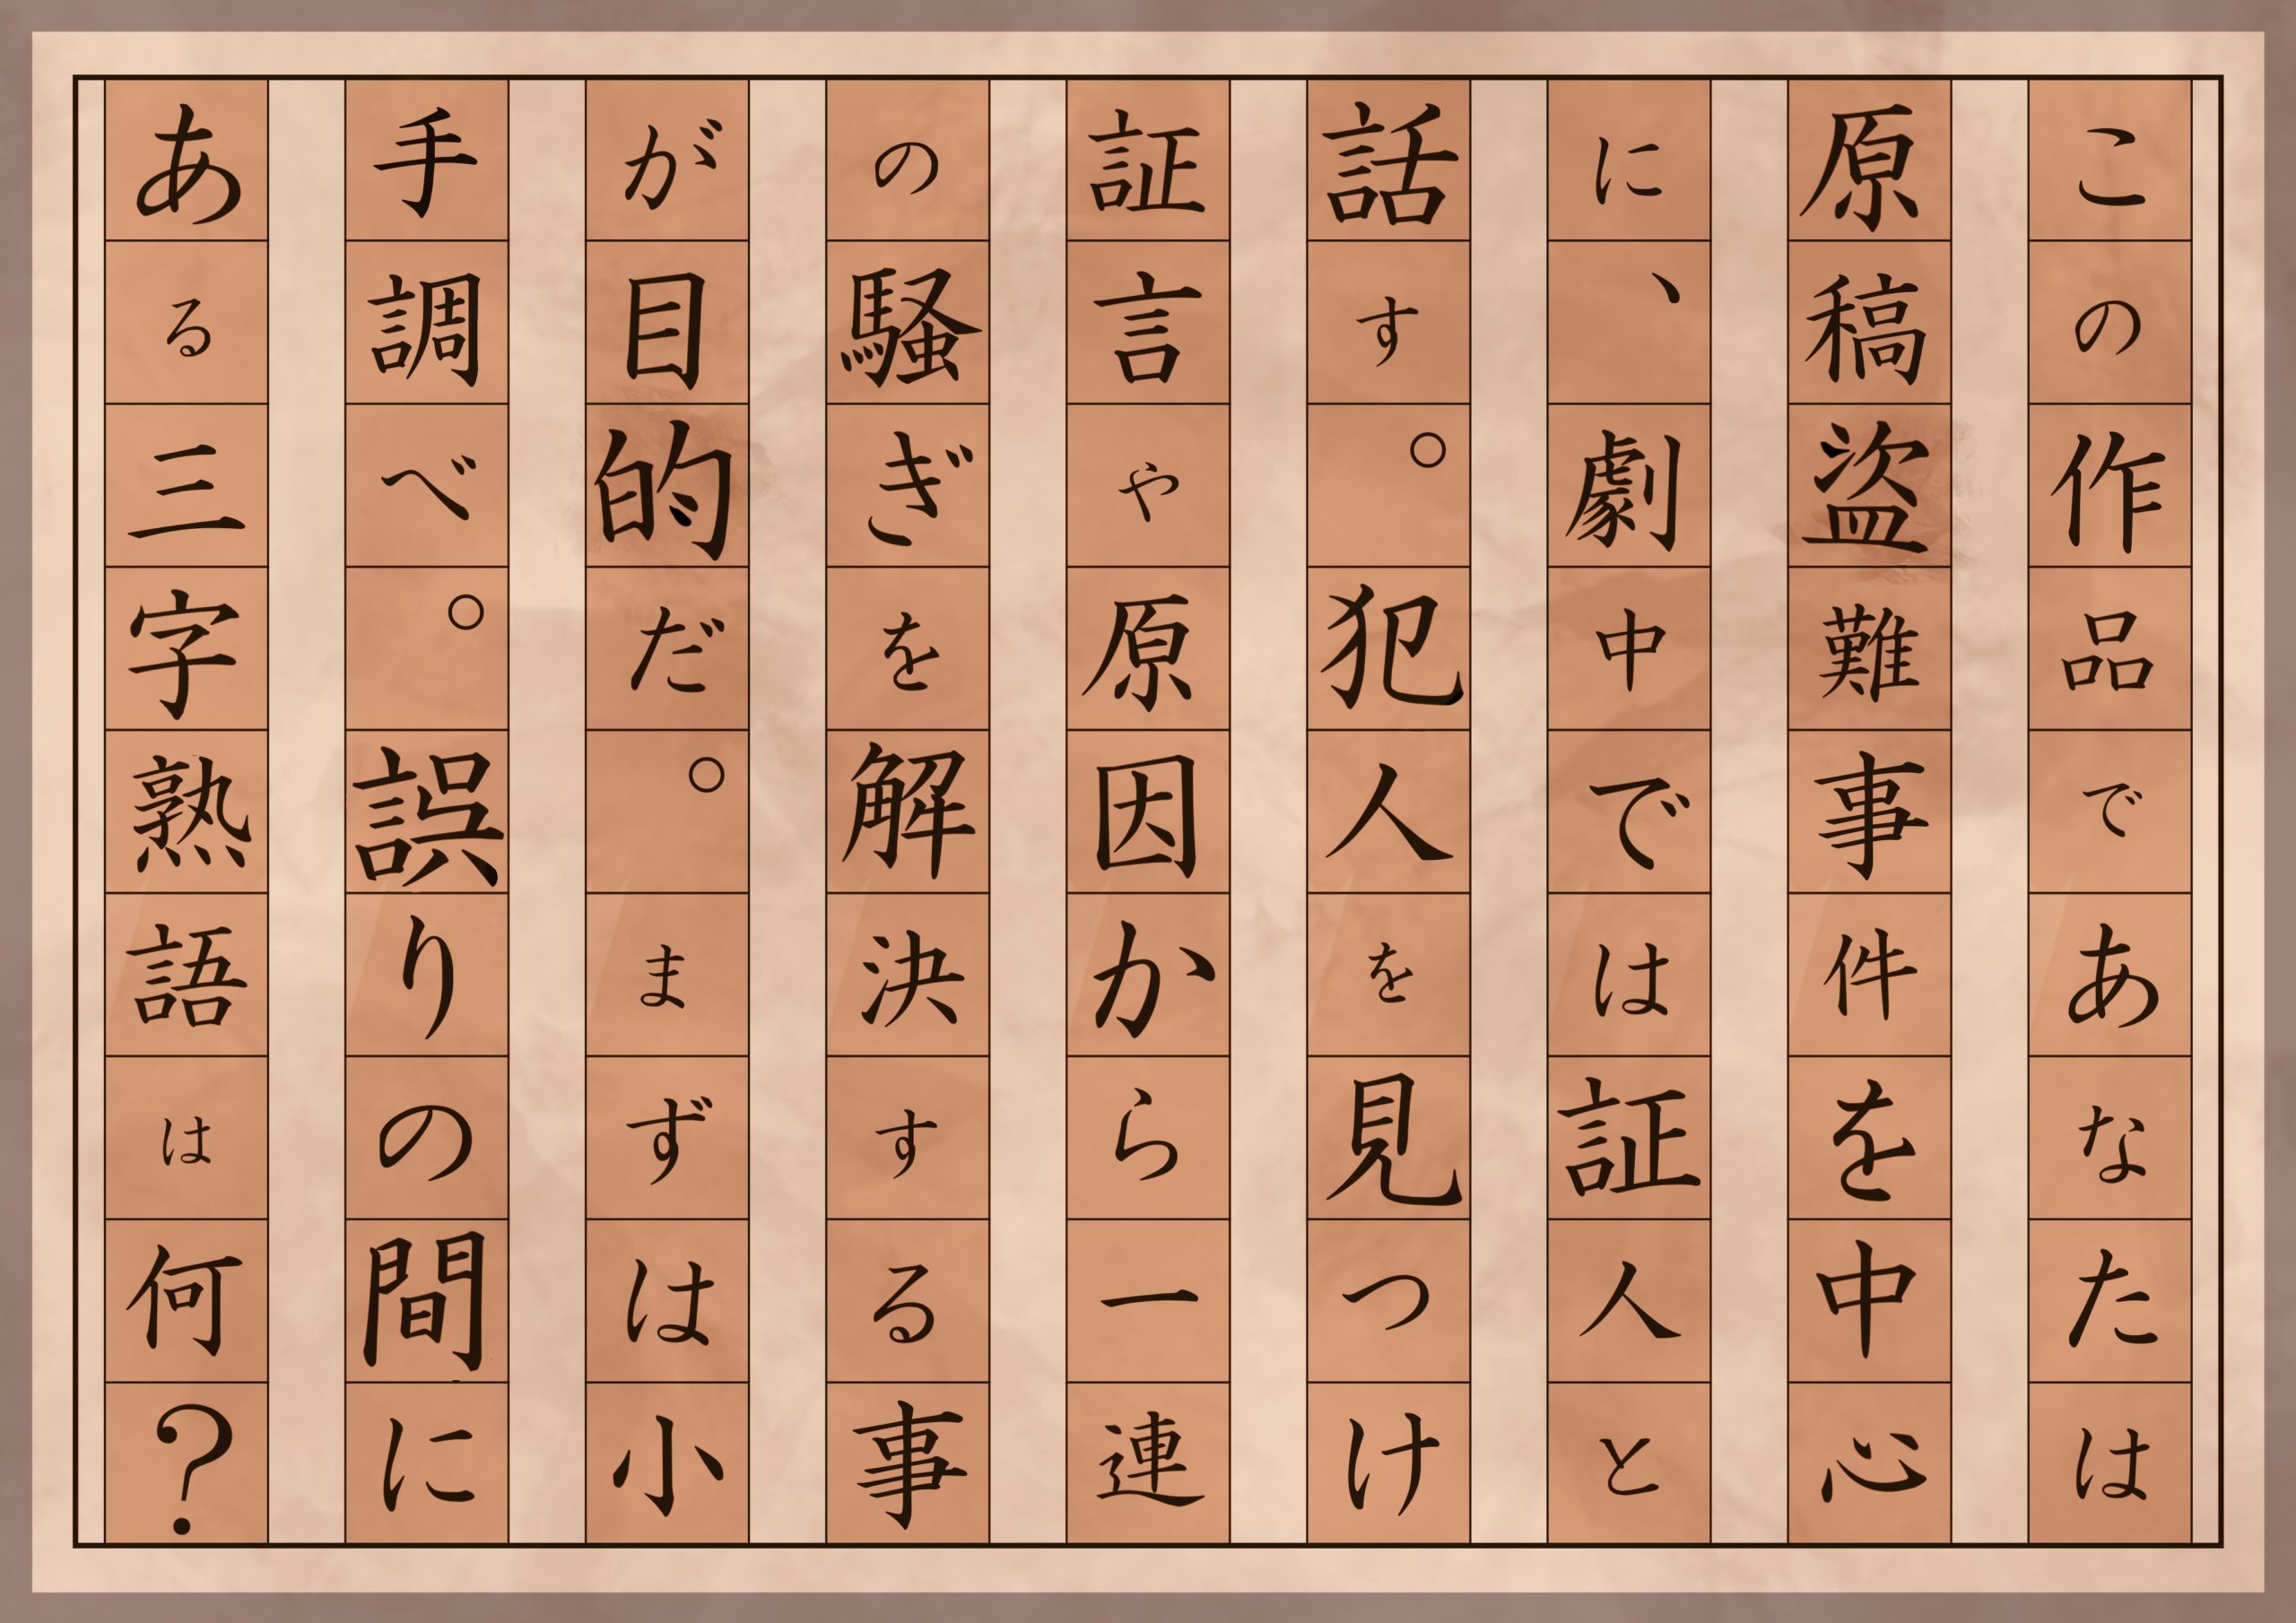 この作品であなたは
原稿盗難事件を中心
に、劇中では証人と
話す。犯人を見つけ
証言や原因から一連
の騒ぎを解決する事
が目的だ。まずは小
手調べ。誤りの間に
ある三字熟語は何？